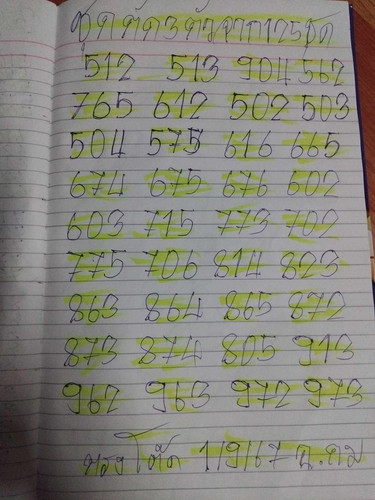 ชุดตัด3ตัวจาก125ชุด
512 513 904 562
765 612 502 503
504 575 616 665
674 675 676 602
603 715 773 702
775 706 814 823
863 864 865 872
873 874 805 913
962 963 972 973
1/9/67